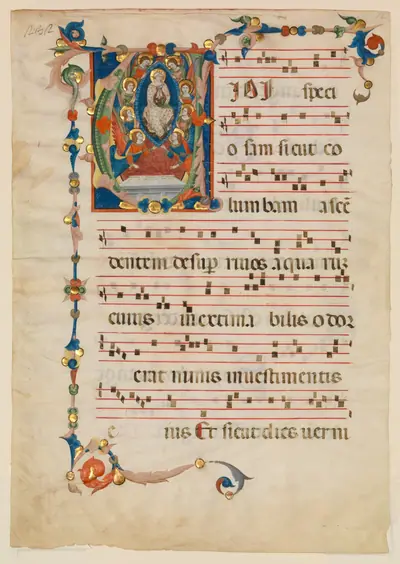 VIDI speci
osam sicut co
lumbam ascē
dentem desuꝑ riuos aquaꝝ
cuius inextima bilis odor
erat nimis in uestimentis
eius Et sicut dies uerni